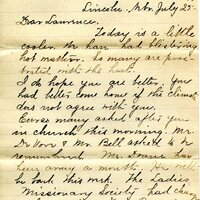 Lincoln, Nbr. July 25
Dear Lawrence,
Today is a little
cooler. We have had blistering
hot weather. So many are pros-
trated with the heat.
I do hope you are better. You
had better come home if the climate
does not agree with you.
many asked after you
in church this morning. Mr.
and Mr. Bell asked to be
remembered. Mr.
been away a month. He will
be back this week. The Ladies
Missionary Society had charge